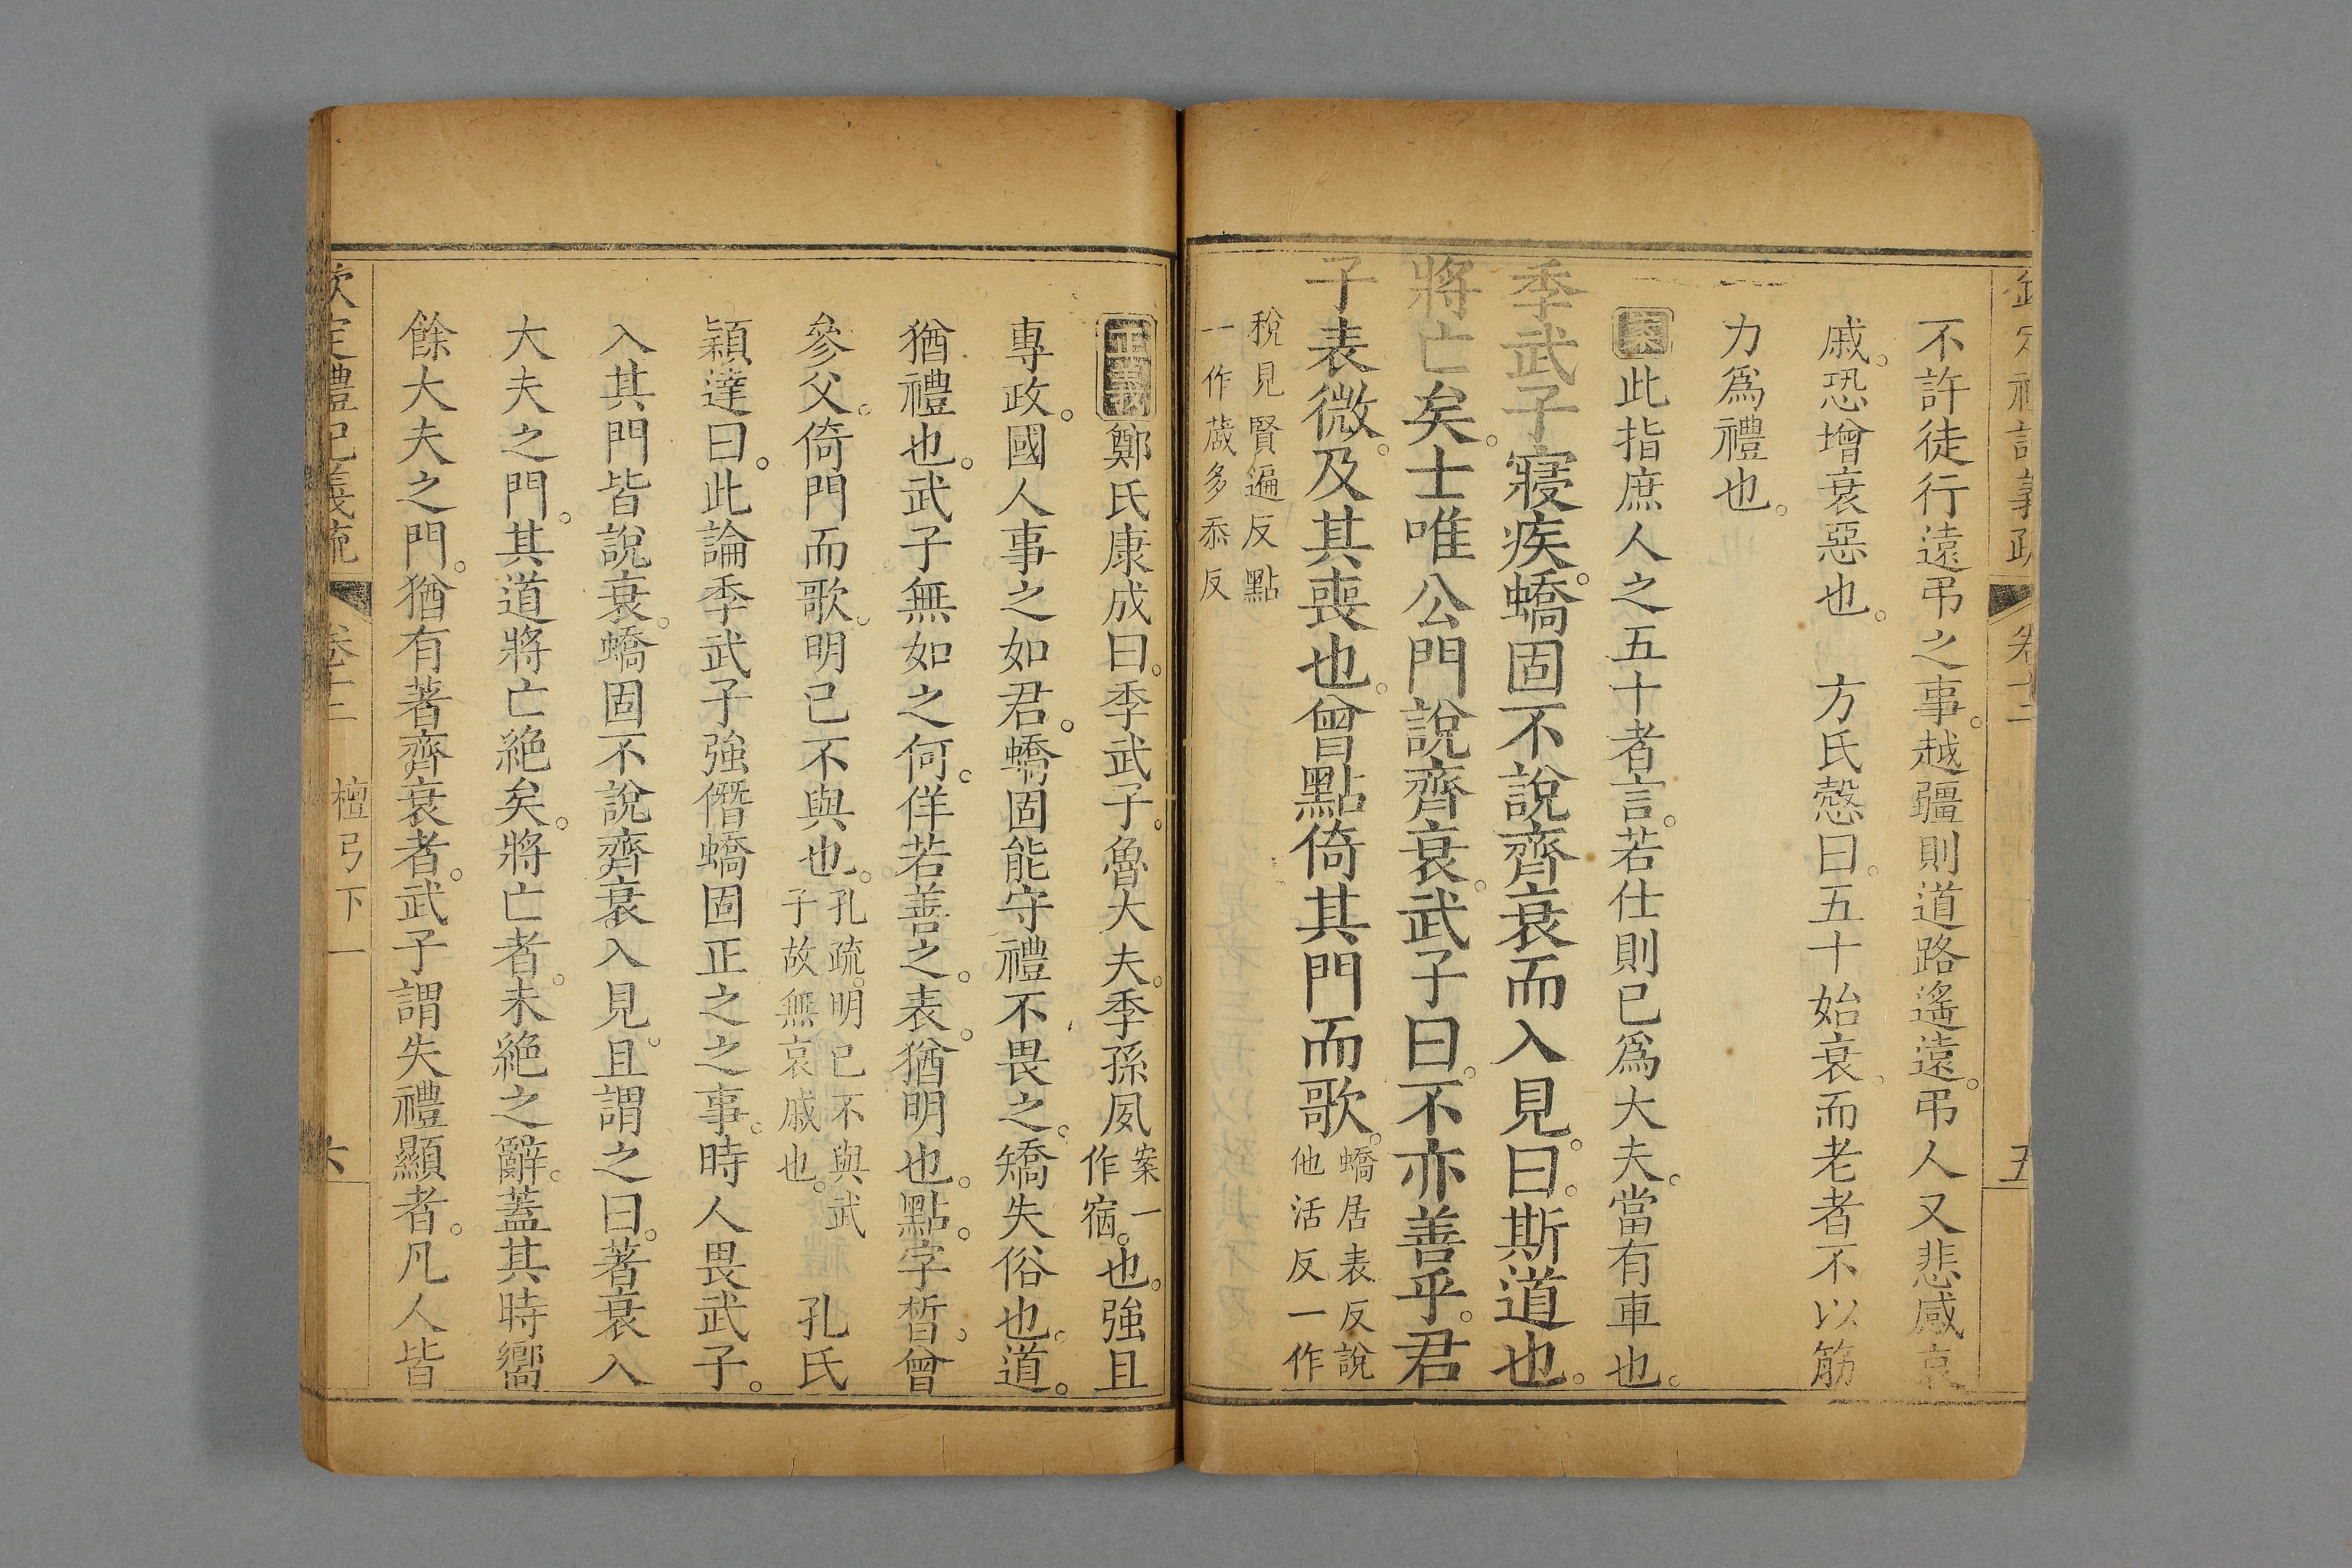 不許徒行遠弔之事。越疆則道路遙遠。弔人又悲感哀
戚。恐增衰惡也。 方氏愨曰。五十始衰。而老者不以筋
力爲禮也。
案此指庶人之五十者言。若仕則已爲大夫。當有車也。
季武子寢疾。蟜固不說齊衰而入見。曰。斯道也。
將亡矣。士唯公門說齊衰。武子曰。不亦善乎。君
子表微。及其喪也。曾點倚其門而歌。蟜居表反說
他活反一作
稅見賢遍反點
一作蒧多忝反
卷十二
五
正義鄭氏康成曰。季武子。魯大夫。季孫夙案一
作宿。也。強且
專政。國人事之如君。蟜固能守禮不畏之。矯失俗也。道。
猶禮也。武子無如之何。佯若善之。表。猶明也。點。字晳。曾
參父。倚門而歌。明已不與也。孔疏。明已不與武
子故無哀戚也。 孔氏
穎達曰。此論季武子強僭蟜固正之之事。時人畏武子。
入其門皆說衰。蟜固不說齊衰入見。且謂之曰。著衰入
大夫之門。其道將亡絶矣。將亡者。未絶之辭。蓋其時嚮
餘大夫之門。猶有著齊衰者。武子謂失禮顯者。凡人皆
欽定禮記義疏 卷十二 檀弓下一 六